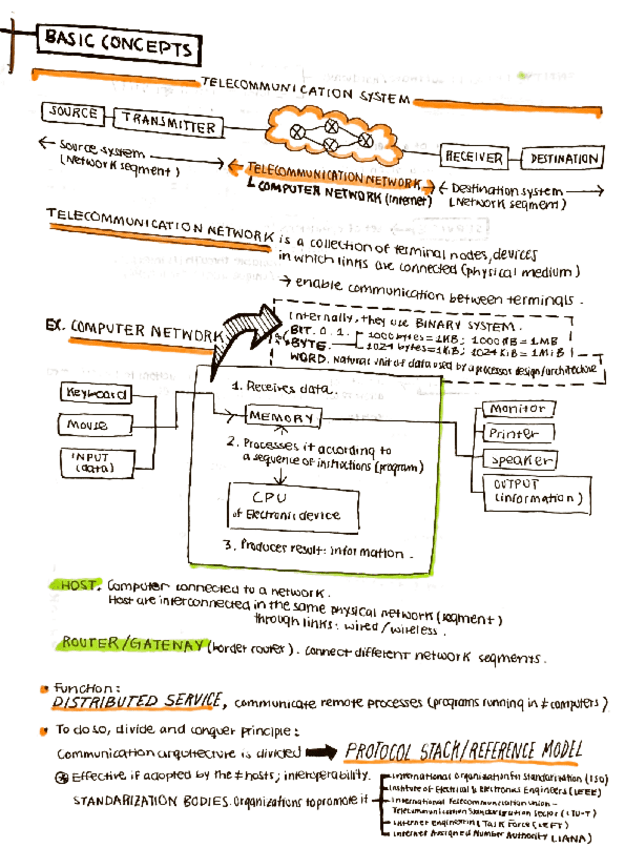 BASIC CONCEPTS
TELECOMMUNICATION SYSTEM
SOURCE TRANSMITTER
RECEIVER DESTINATION
← Source system → (Network segment)
← TELECOMMUNICATION NETWORK →
↳ COMPUTER NETWORK (Internet)
← Destination system → (Network segment)
TELECOMMUNICATION NETWORK is a collection of terminal nodes, devices
in which links are connected (physical medium)
→ enable communication between terminals.
Internally, they use BINARY SYSTEM.
BIT. 0. 1.
BYTE.
1000 bytes = 1KB; 1000 KB = 1MB
1024 bytes = 1KiB; 1024 KiB = 1MiB
WORD. Natural unit of data used by a processor design/architecture
EX. COMPUTER NETWORK
Keyboard
Mouse
INPUT
(data)
1. Receives data.
MEMORY
2. Processes it according to
a sequence of instructions (program)
CPU
of Electronic device
3. Produces result: information.
Monitor
Printer
Speaker
OUTPUT
(information)
HOST. Computer connected to a network.
Host are interconnected in the same physical network (segment)
through links: wired/wireless.
ROUTER/GATEWAY (border router). connect different network segments.
Function:
DISTRIBUTED SERVICE, communicate remote processes (programs running in ≠ computers)
To do so, divide and conquer principle:
Communication arquitecture is divided ➡ PROTOCOL STACK/REFERENCE MODEL
Effective if adopted by the ≠ hosts; interoperability.
STANDARIZATION BODIES. Organizations to promote it
International Organization for Standarization (ISO)
Institute of Electrical & Electronics Engineers (IEEE)
International Telecommunication Union -
Telecommunication Standardization Sector (ITU-T)
Internet Engineering Task Force (IEFT)
Internet Assigned Number Authority (IANA)